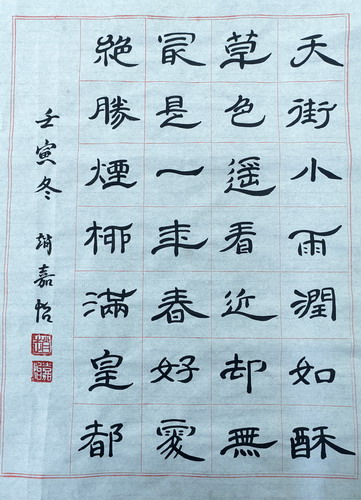 天街小雨潤如酥
草色遥看近却無
冣是一年春好處
絶勝煙柳滿皇都
壬寅冬 嘉怡